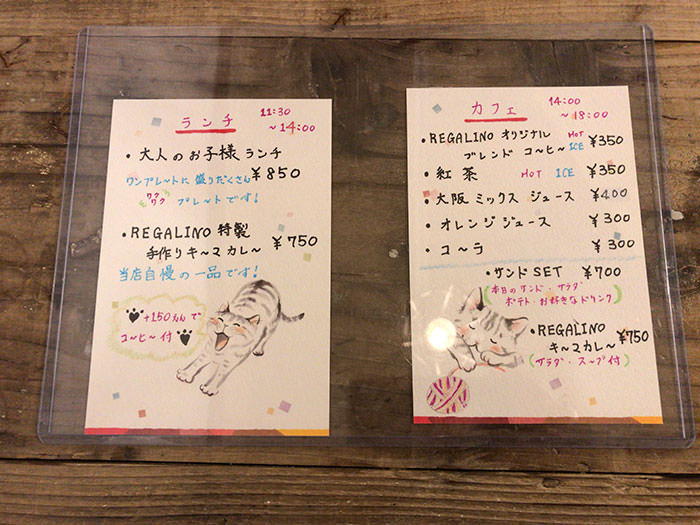 ランチ
11:30
~14:00
・大人のお子様ランチ
¥850
ワンプレートに盛りだくさん
ワクワク
プレートです!
・REGALINO特製
手作りキーマカレー
¥750
当店自慢の一品です!
+150えんで
コーヒー付
カフェ
14:00
~18:00
・REGALINO オリジナル HOT
ブレンド コーヒー ICE ¥350
・紅茶 HOT ICE ¥350
・大阪ミックスジュース ¥400
・オレンジジュース ¥300
・コーラ ¥300
・サンドSET ¥700
(本日のサンド・サラダ
ポテト・お好きなドリンク)
・REGALINO
キーマカレー ¥750
(サラダ・スープ付)